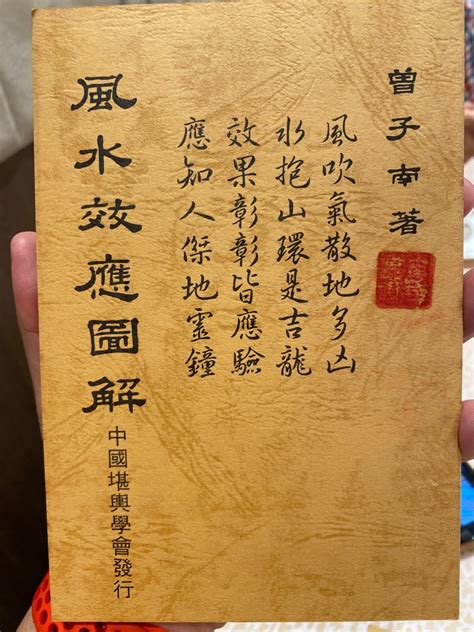 曾子南著
風吹氣散地多凶
水抱山環是吉龍
效果彰彰皆應驗
應知人傑地靈鐘
風水效應圖解
中國堪輿學會發行